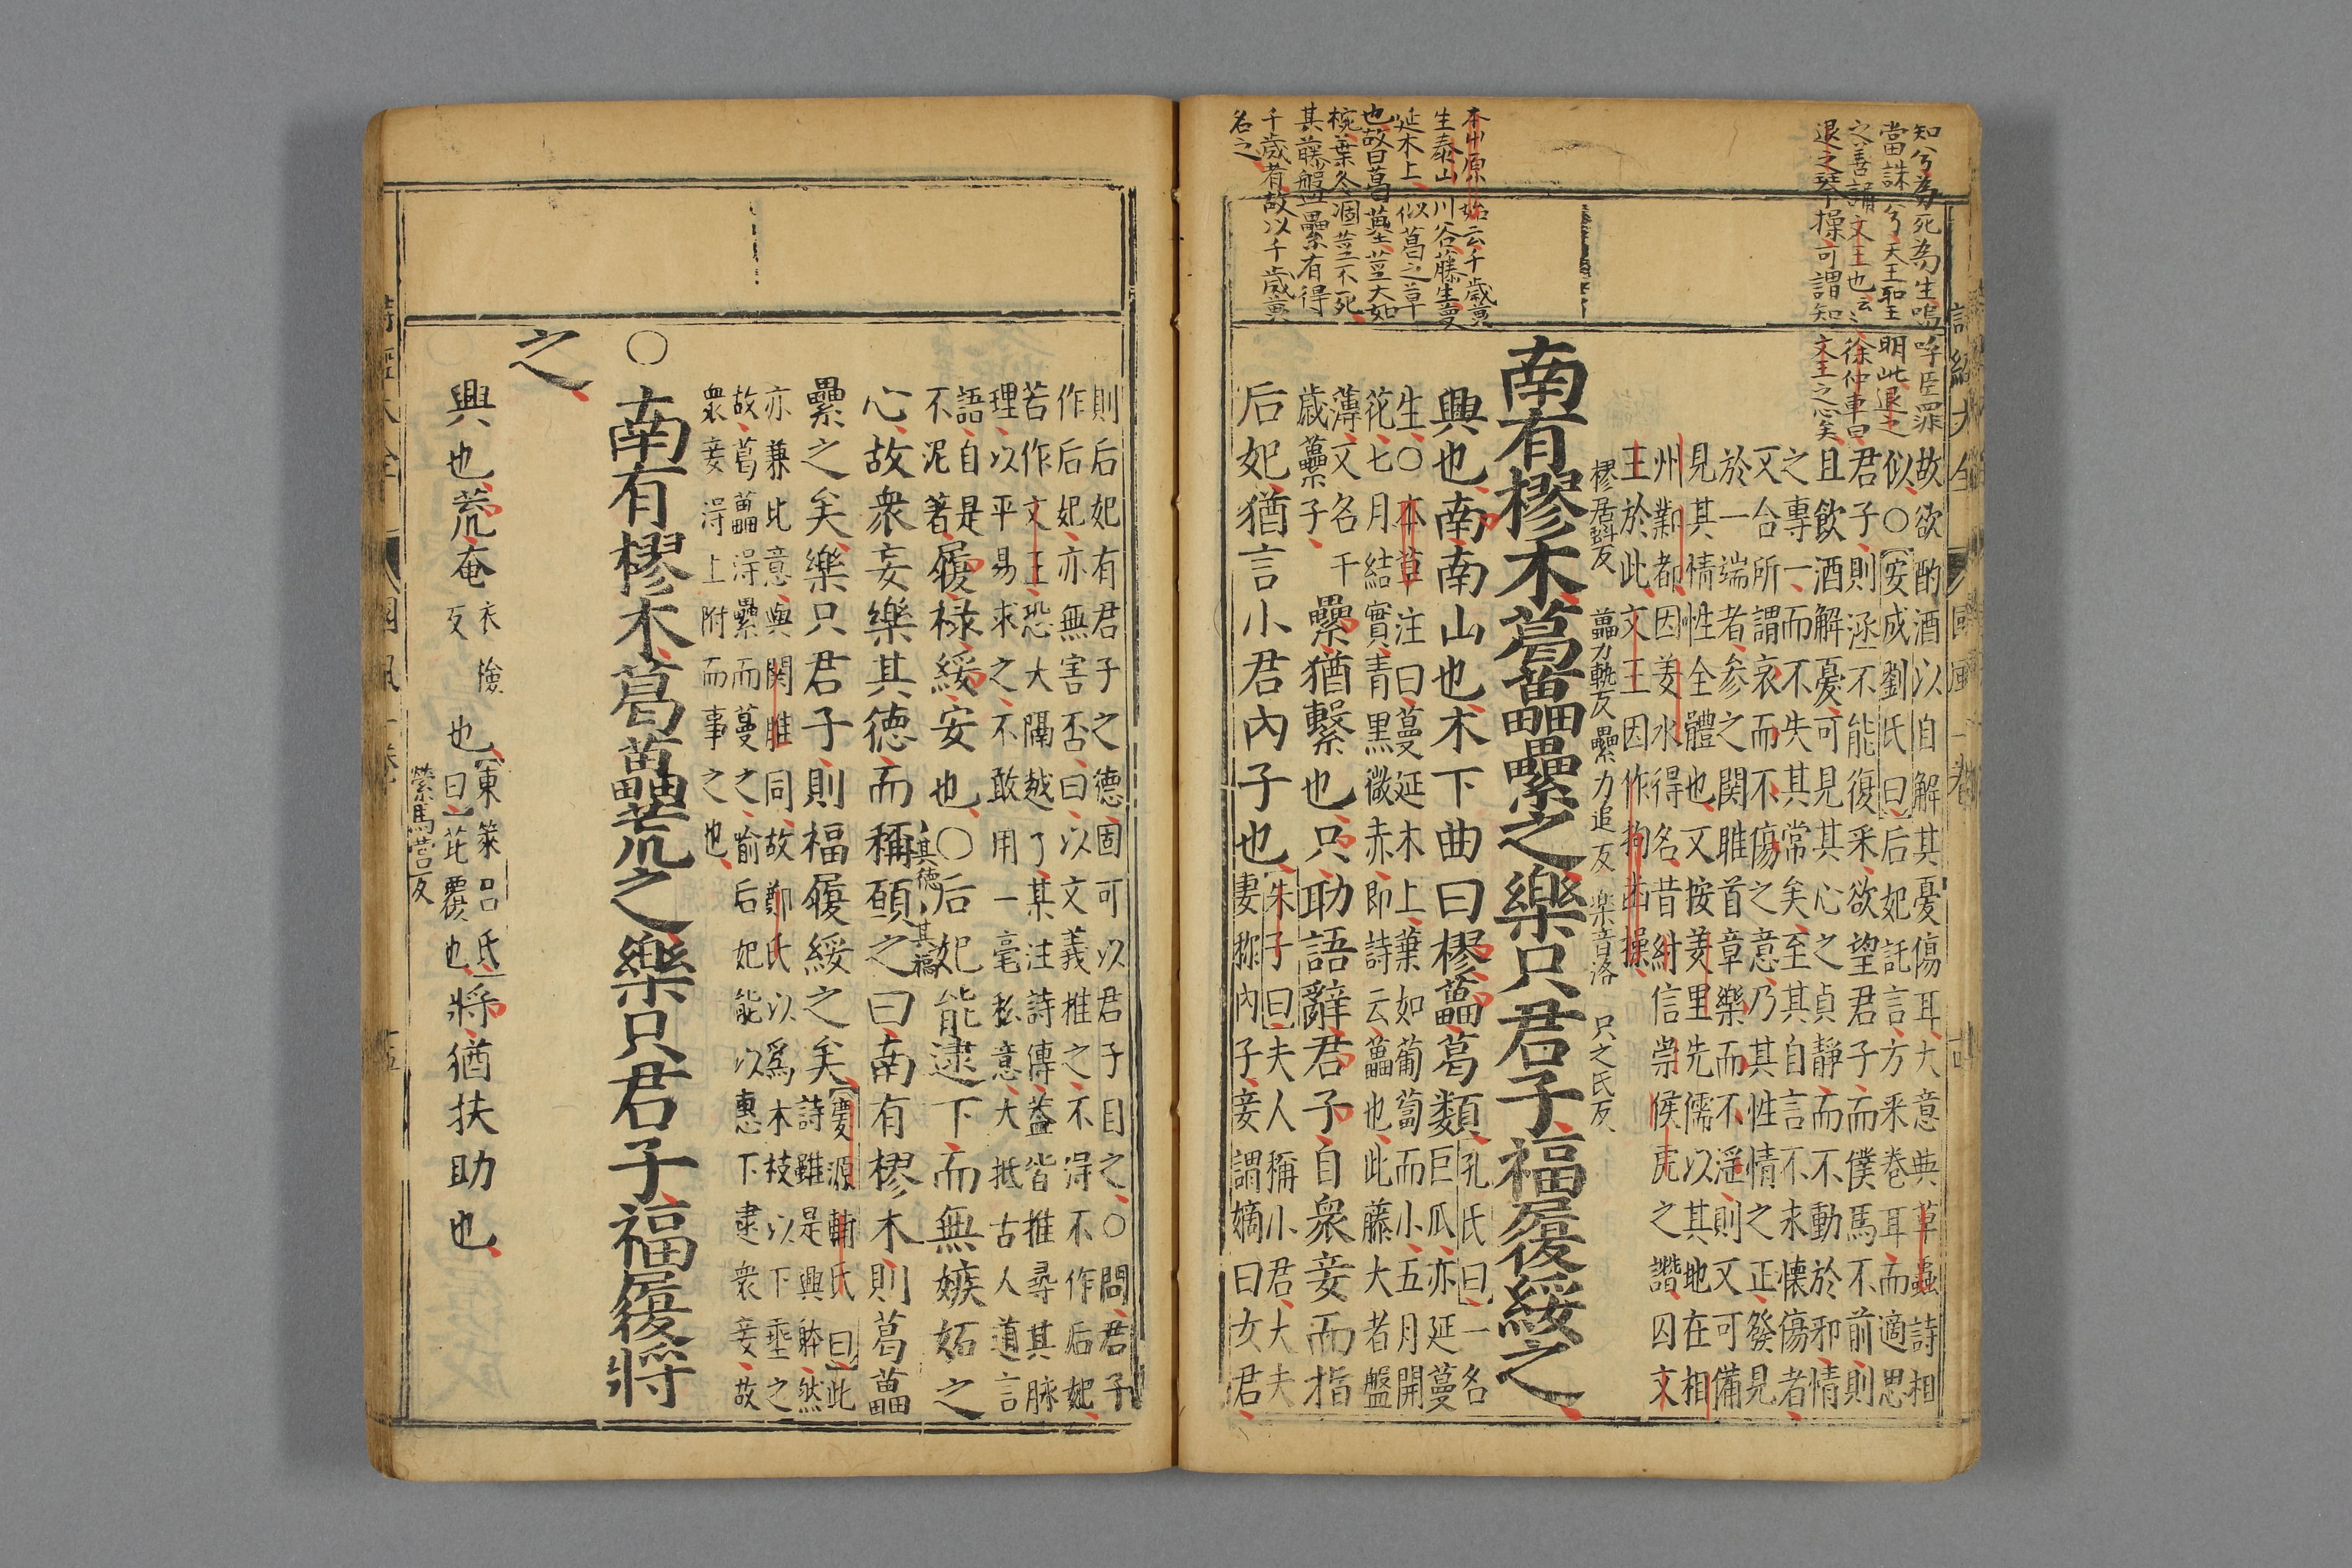 知兮為死為生嗚呼臣罪
當誅兮天王聖明此退之
之善誦文王也云〻徐仲車曰
退之琴操可謂知文王之心矣
故欲酌酒以自解其憂傷耳大意與草蟲詩相
似○安成劉氏曰后妃託言方釆卷耳而適思
君子則遂不能復釆欲望君子而僕馬不前則
且飲酒解憂可見其心之貞靜而不動於邪情
之專一而不失其常矣至其自言不永懷傷者
又合所謂哀而不傷之意乃其性情之正發見
於一端者參之関雎首章樂而不淫則又可備
見其情性全體也又按羑里先儒以其地在相
州鄴都因羑水得名昔紂信崇侯虎之譖囚文
王於此文王因作拘幽操
樛居虯反 藟力軌反 纍力追反 楽音洛 只之氏反
南有樛木葛藟纍之樂只君子福履綏之
本艸原始云千歳蘽
生泰山川谷藤生蔓
延木上似葛之草
也故曰葛蘽莖大如
椀葉冬凋莖不死
其藤盤纍有得
千歳者故以千歳蘽
名之
興也南南山也木下曲曰樛藟葛類
孔氏曰一名
巨瓜亦延蔓
生○本草注曰蔓延木上葉如葡萄而小五月開
花七月結實青黒微赤即詩云藟也此藤大者盤
薄又名千
歳虆子
纍猶繫也只助語辭君子自衆妾而指
后妃猶言小君內子也
朱子曰夫人稱小君大夫
妻称內子妾謂嫡曰女君
則后妃有君子之德固可以君子目之○問君子
作后妃亦無害否曰以文義推之不得不作后妃
若作文王恐大隔越了某注詩傳蓋皆推尋其脉
理以平易求之不敢用一毫私意大抵古人道言
語自是
不泥著
履祿綏安也○后妃能逮下而無嫉妬之
其德 其福
心故衆妾樂其德而稱願之曰南有樛木則葛藟
纍之矣樂只君子則福履綏之矣
慶源輔氏曰此
詩雖是興體然
亦兼比意與関雎同故鄭氏以為木枝以下埀之
故葛藟得纍而蔓之喻后妃能以惠下逮衆妾故
衆妾得上附而事之也
○南有樛木葛藟荒之樂只君子福履將
之
興也荒奄
衣檢
反
也
東萊呂氏
曰芘覆也
將猶扶助也
縈烏営反